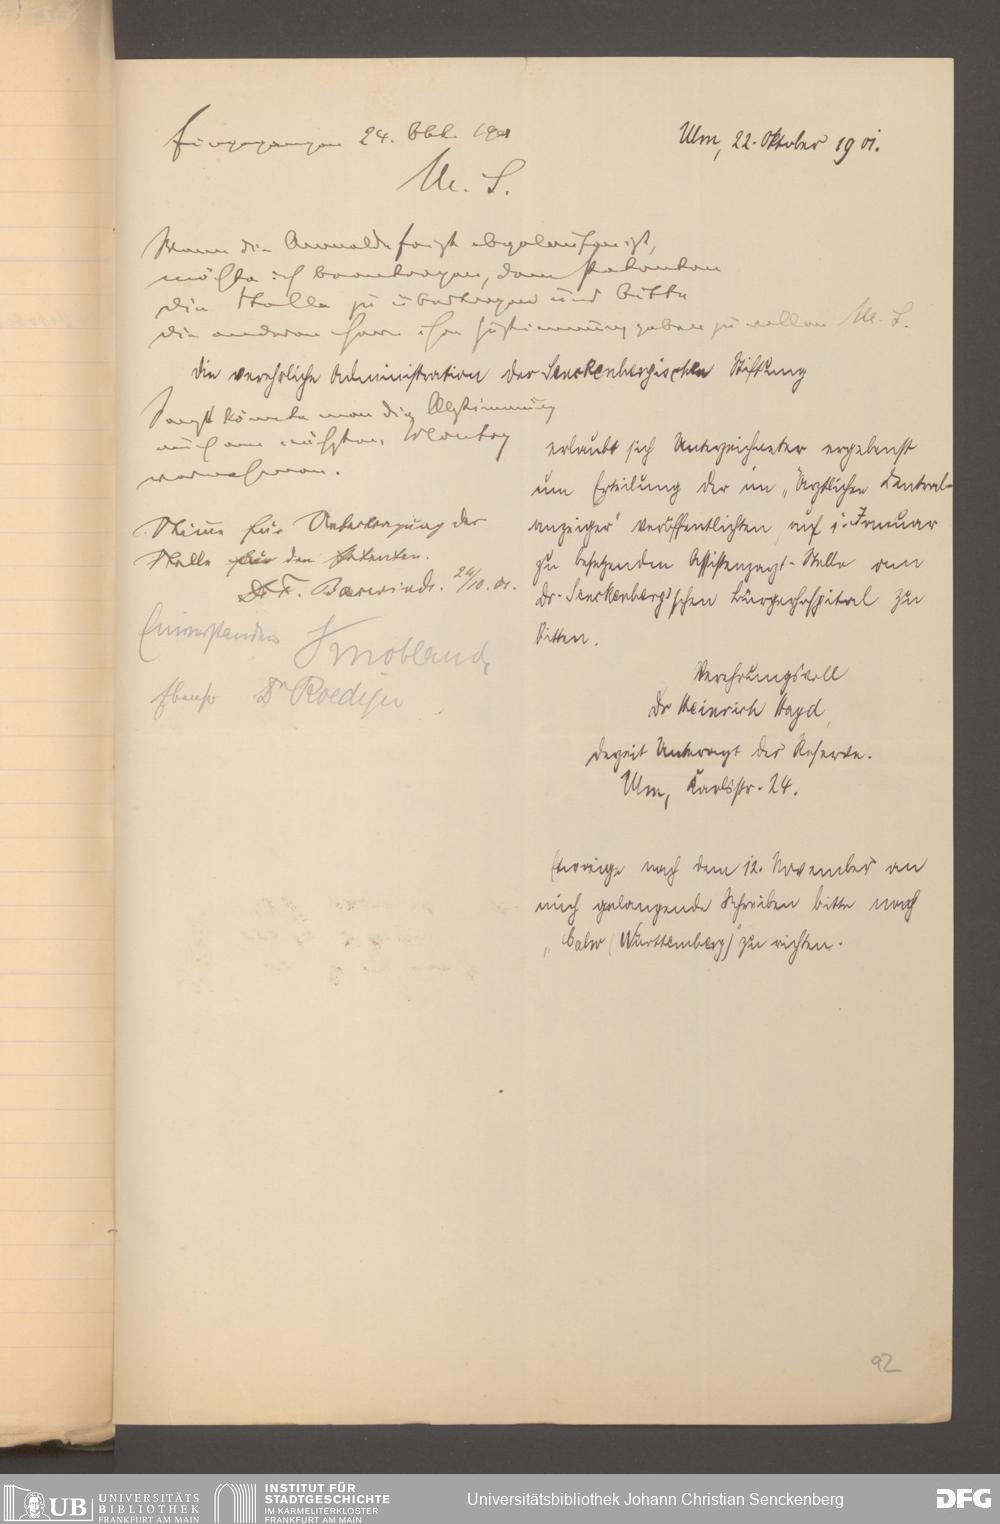 Eingegangen 24. Okt. 1901
M. S.
Ulm, 22. Oktober 1901.
Wenn die Anmeldefrist abgelaufen ist,
möchte ich beantragen, dem Petenten
die Stelle zu übertragen und bitte
die anderen Herrn ihre Zustimmung geben zu wollen M. S.
Die verehrliche Administration der Senckenbergischen Stiftung
Sonst könnte man die Abstimmung
auch am nächsten Montag
vornehmen.
Stimme für Uebertragung der
Stelle für den Petenten.
Dr F. Baerwindt. 24/10. 01.
Einverstanden
Ebenso Dr Roediger
erlaubt sich Unterzeichneter ergebenst
um Erteilung der im „Ärztlichen Central-
anzeiger" veröffentlichten, auf 1. Januar
zu besetzenden Assistenzarzt-Stelle am
Dr. Senckenberg'schen Bürgerhospital zu
bitten.
Verehrungsvoll
Dr Heinrich Hayd,
derzeit Unterarzt der Reserve.
Ulm, Karlsstr. 24.
Etwaige nach dem 12. November an
mich gelangende Schreiben bitte nach
„Calw (Württemberg)" zu richten.
92
UB UNIVERSITÄTS
BIBLIOTHEK
FRANKFURT AM MAIN
INSTITUT FÜR
STADTGESCHICHTE
IM KARMELITERKLOSTER
FRANKFURT AM MAIN
Universitätsbibliothek Johann Christian Senckenberg
DFG